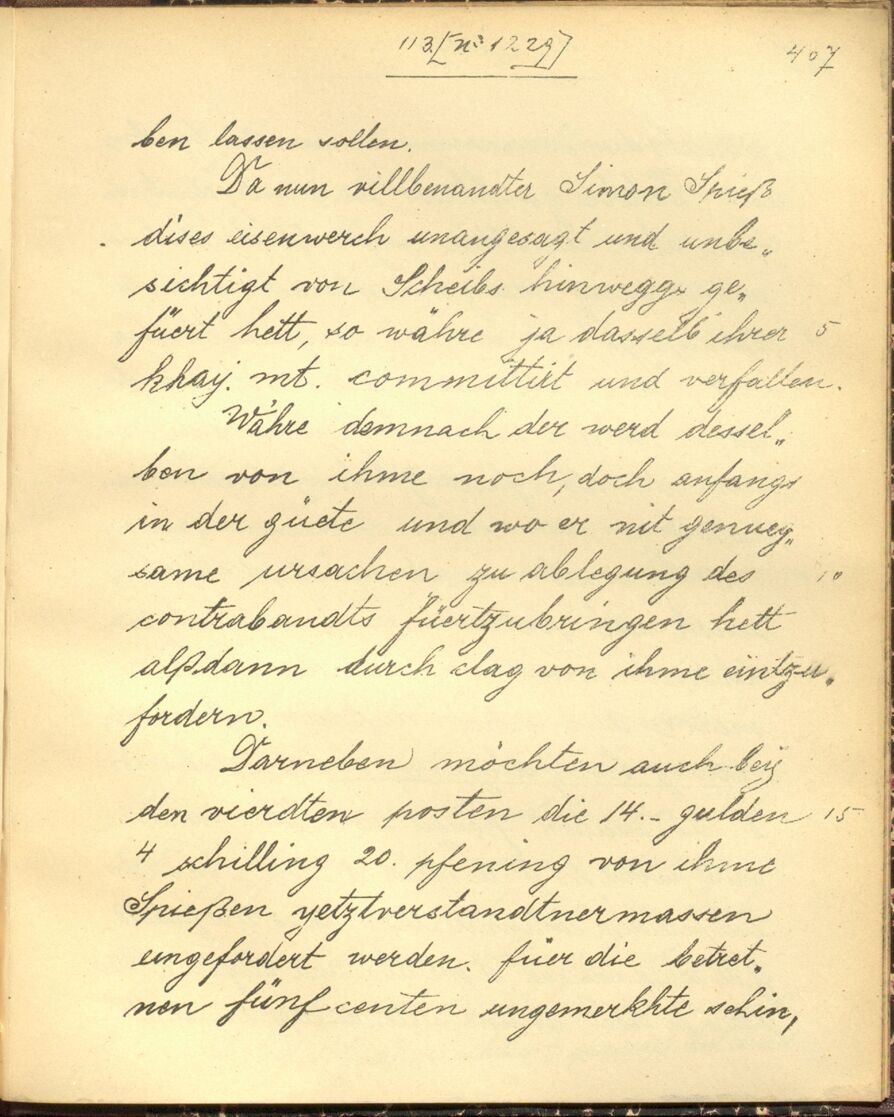 113. [Nº 1229]
407
ben lassen sollen.
Da nun villbenandter Simon Spieß
dises eisenwerch unangesagt und unbe„
sichtigt von Scheibs hinwegg ge„
füert hett, so währe ja dasselb ihrer 5
khay. mt. committirt und verfallen.
Währe demnach der werd dessel„
ben von ihme noch, doch anfangs
in der güete und wo er nit genueg„
same ursachen zu ablegung des 10
contrabandts fürtzubringen hett
alßdann durch clag von ihme eintzu„
fordern.
Darneben möchten auch bey
den vierdten posten die 14.- gulden 15
4 schilling 20. pfening von ihme
Spießen yetztverstandtnermassen
eingefordert werden. füer die betret„
nen fünf centen ungemerkhte schin,